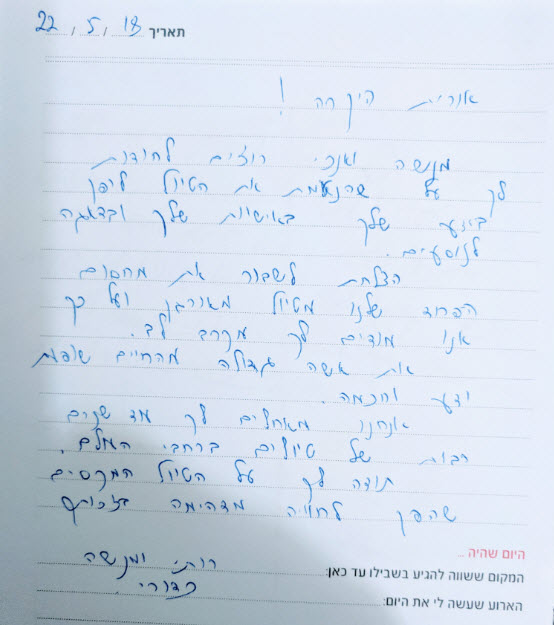 תאריך 18, 5, 22
אורית היקרה !
מנשה ואנכי רוצים להודות
לך על שהנעמת את הטיול ליפן
בידע שלך באישיות שלך ובדאגה
לנוסעים.
הצלחת לשבור את מחסום
הפחד שלנו מטיול מאורגן ועל כך
אנו מודים לך מקרב לב.
את אשה גדולה מהחיים שופעת
ידע וחכמה.
אנחנו מאחלים לך עוד שנים
רבות של טיולים ברחבי העולם.
תודה לך על הטיול המקסים
שהפך לחוויה מדהימה בזכותך
רותי ומנשה
כדורי.
היום שהיה ..
המקום ששווה להגיע בשבילו עד כאן:
הארוע שעשה לי את היום: